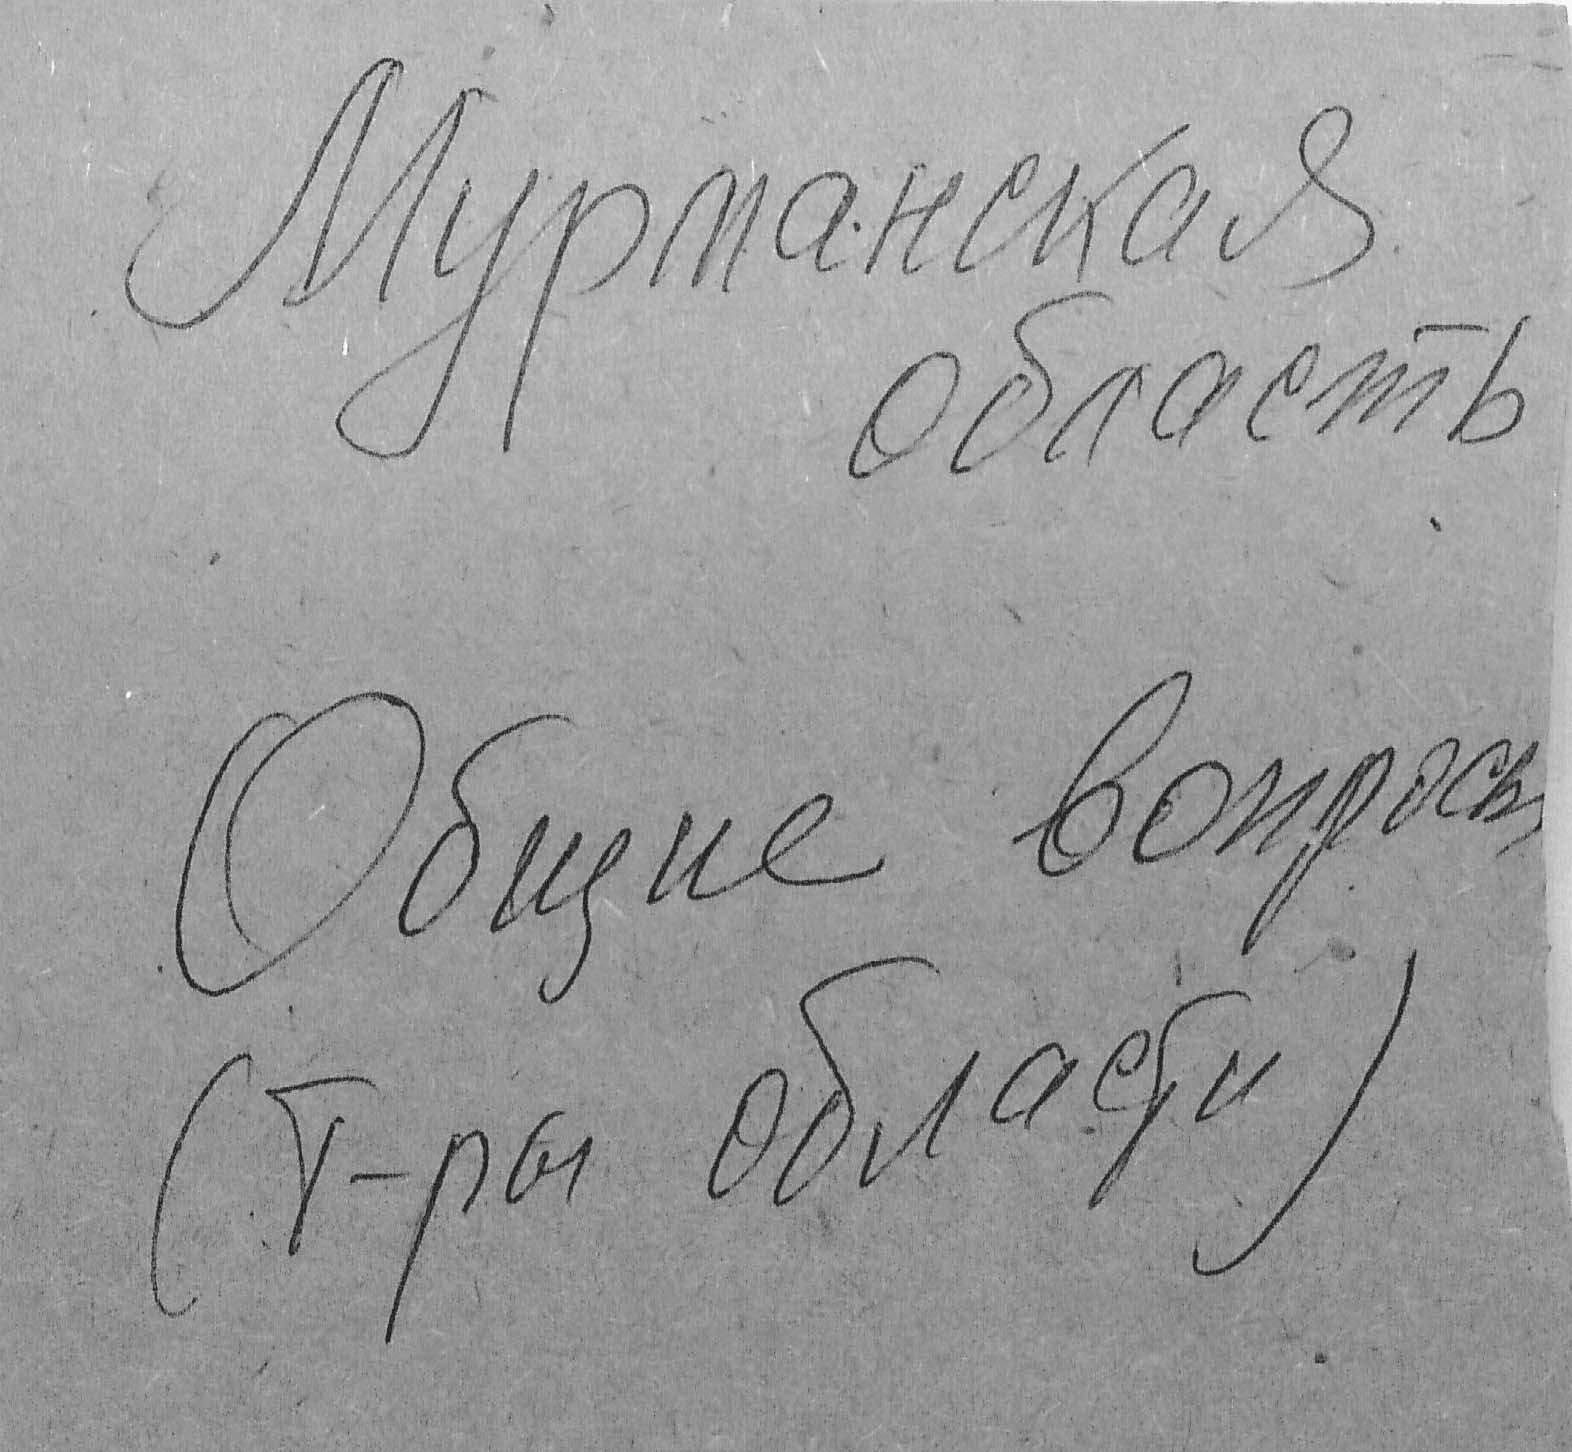 Мурманская
область
Общие вопросы
(т-ры области)